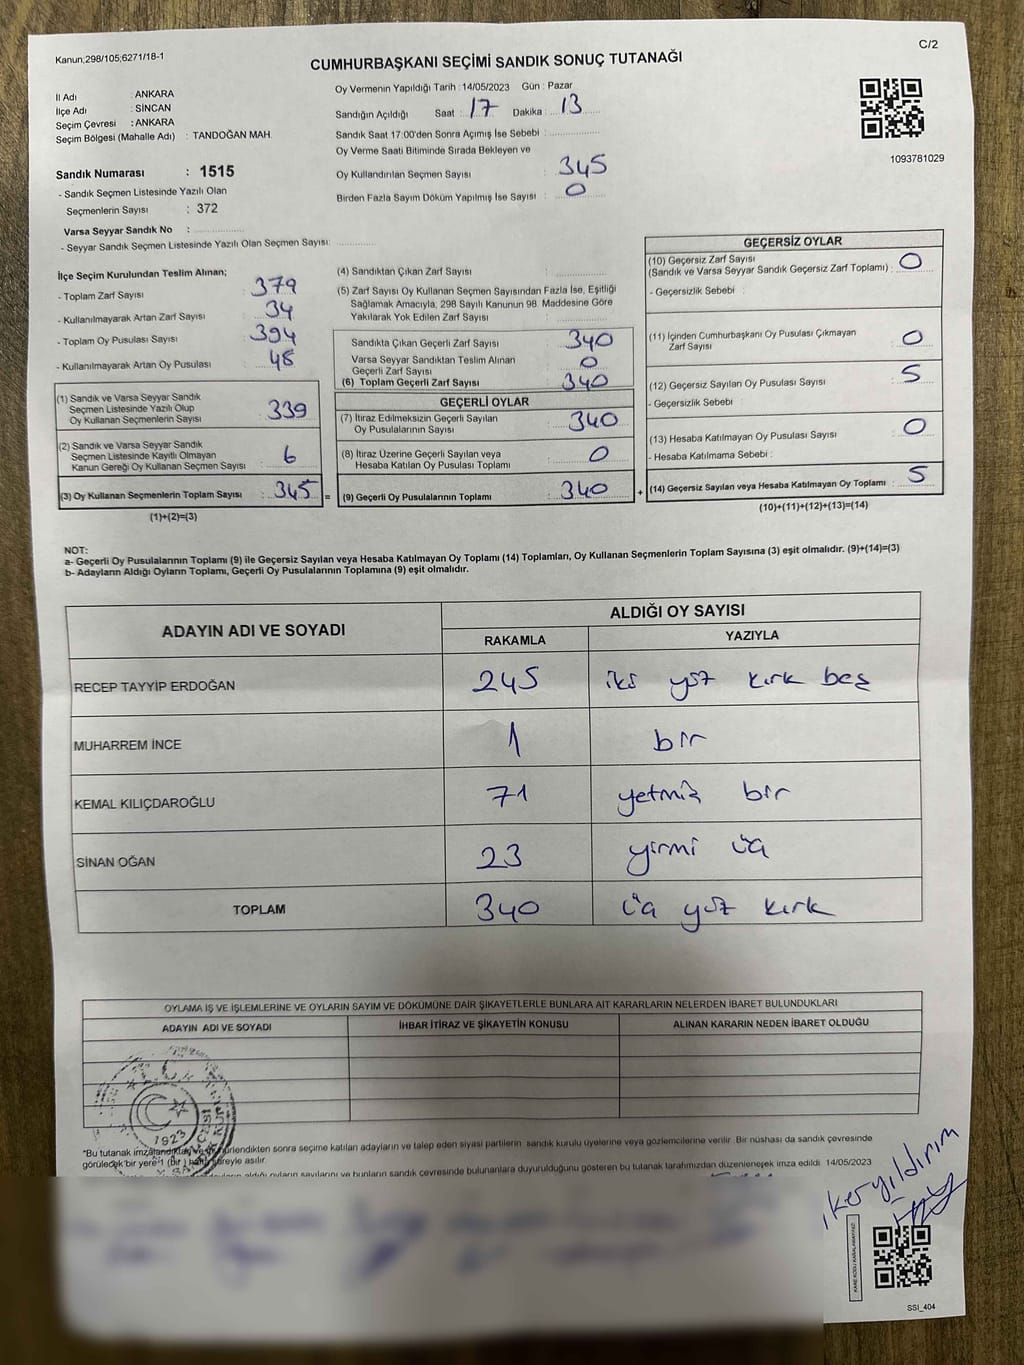 Kanun;298/105;6271/18-1
C/2
CUMHURBAŞKANI SEÇİMİ SANDIK SONUÇ TUTANAĞI
İl Adı : ANKARA
İlçe Adı : SİNCAN
Seçim Çevresi : ANKARA
Seçim Bölgesi (Mahalle Adı) : TANDOĞAN MAH.
Sandık Numarası : 1515
- Sandık Seçmen Listesinde Yazılı Olan
Seçmenlerin Sayısı : 372
Varsa Seyyar Sandık No :
- Seyyar Sandık Seçmen Listesinde Yazılı Olan Seçmen Sayısı:
Oy Vermenin Yapıldığı Tarih : 14/05/2023 Gün : Pazar
Sandığın Açıldığı Saat : 17 Dakika : 13
Sandık Saat 17:00'den Sonra Açımış İse Sebebi :
Oy Verme Saati Bitiminde Sırada Bekleyen ve
Oy Kullandırılan Seçmen Sayısı : 345
Birden Fazla Sayım Döküm Yapılmış İse Sayısı : 0
1093781029
İlçe Seçim Kurulundan Teslim Alınan;
- Toplam Zarf Sayısı : 379
- Kullanılmayarak Artan Zarf Sayısı : 34
- Toplam Oy Pusulası Sayısı : 394
- Kullanılmayarak Artan Oy Pusulası : 48
(1) Sandık ve Varsa Seyyar Sandık
Seçmen Listesinde Yazılı Olup
Oy Kullanan Seçmenlerin Sayısı : 339
(2) Sandık ve Varsa Seyyar Sandık
Seçmen Listesinde Kayıtlı Olmayan
Kanun Gereği Oy Kullanan Seçmen Sayısı : 6
(3) Oy Kullanan Seçmenlerin Toplam Sayısı : 345 =
(1)+(2)=(3)
(4) Sandıktan Çıkan Zarf Sayısı :
(5) Zarf Sayısı Oy Kullanan Seçmen Sayısından Fazla İse, Eşitliği
Sağlamak Amacıyla, 298 Sayılı Kanunun 98. Maddesine Göre
Yakılarak Yok Edilen Zarf Sayısı :
Sandıkta Çıkan Geçerli Zarf Sayısı : 340
Varsa Seyyar Sandıktan Teslim Alınan
Geçerli Zarf Sayısı : 0
(6) Toplam Geçerli Zarf Sayısı : 340
GEÇERLİ OYLAR
(7) İtiraz Edilmeksizin Geçerli Sayılan
Oy Pusulalarının Sayısı : 340
(8) İtiraz Üzerine Geçerli Sayılan veya
Hesaba Katılan Oy Pusulası Toplamı : 0
(9) Geçerli Oy Pusulalarının Toplamı : 340 +
GEÇERSİZ OYLAR
(10) Geçersiz Zarf Sayısı
(Sandık ve Varsa Seyyar Sandık Geçersiz Zarf Toplamı) : 0
- Geçersizlik Sebebi :
(11) İçinden Cumhurbaşkanı Oy Pusulası Çıkmayan
Zarf Sayısı : 0
(12) Geçersiz Sayılan Oy Pusulası Sayısı : 5
- Geçersizlik Sebebi :
(13) Hesaba Katılmayan Oy Pusulası Sayısı : 0
- Hesaba Katılmama Sebebi :
(14) Geçersiz Sayılan veya Hesaba Katılmayan Oy Toplamı : 5
(10)+(11)+(12)+(13)=(14)
NOT:
a- Geçerli Oy Pusulalarının Toplamı (9) ile Geçersiz Sayılan veya Hesaba Katılmayan Oy Toplamı (14) Toplamları, Oy Kullanan Seçmenlerin Toplam Sayısına (3) eşit olmalıdır. (9)+(14)=(3)
b- Adayların Aldığı Oyların Toplamı, Geçerli Oy Pusulalarının Toplamına (9) eşit olmalıdır.
ADAYIN ADI VE SOYADI
ALDIĞI OY SAYISI
RAKAMLA YAZIYLA
RECEP TAYYİP ERDOĞAN 245 iki yüz kırk beş
MUHARREM İNCE 1 bir
KEMAL KILIÇDAROĞLU 71 yetmiş bir
SİNAN OĞAN 23 yirmi üç
TOPLAM 340 üç yüz kırk
OYLAMA İŞ VE İŞLEMLERİNE VE OYLARIN SAYIM VE DÖKÜMÜNE DAİR ŞİKAYETLERLE BUNLARA AİT KARARLARIN NELERDEN İBARET BULUNDUKLARI
ADAYIN ADI VE SOYADI İHBAR İTİRAZ VE ŞİKAYETİN KONUSU ALINAN KARARIN NEDEN İBARET OLDUĞU
T.C.
1923
*Bu tutanak imzalandıktan ve mühürlendikten sonra seçime katılan adayların ve talep eden siyasi partilerin sandık kurulu üyelerine veya gözlemcilerine verilir. Bir nüshası da sandık çevresinde
görülecek bir yere 1 (bir) hafta süreyle asılır.
aldığı oyların sayılarını ve bunların sandık çevresinde bulunanlara duyurulduğunu gösteren bu tutanak tarafımızdan düzenlenerek imza edildi. 14/05/2023
ilker yıldırım
KARE KODU KARALAMAYINIZ
SSI_404